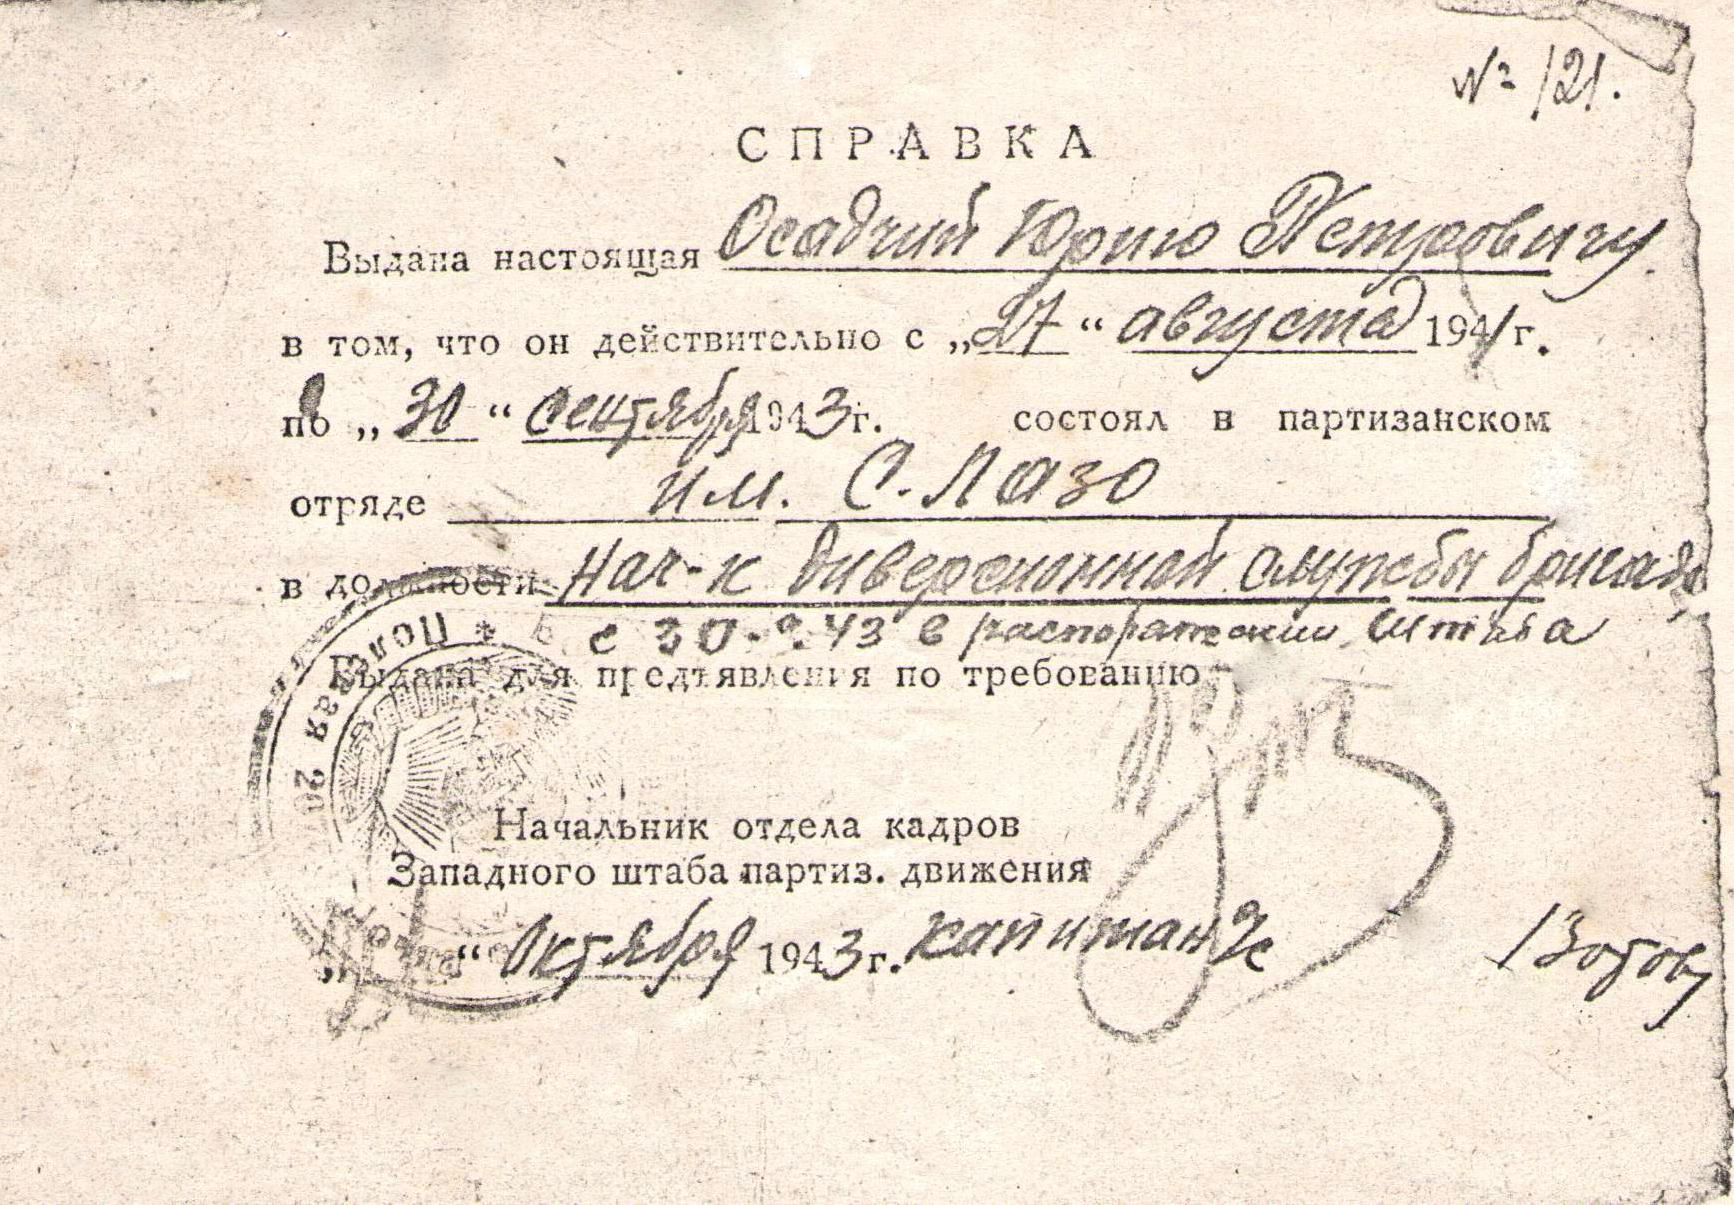 № 121.
СПРАВКА
Выдана настоящая Осадчий Юрию Петровичу
в том, что он действительно с „27“ августа 1941 г.
по „30“ сентября 1943 г. состоял в партизанском
отряде им. С. Лазо
в должности Нач-к диверсионной службы бригады
с 30.9.43 в распоряжении Штаба
Выдана для предъявления по требованию
Полевая 20
Начальник отдела кадров
Западного штаба партиз. движения
„ “ Октября 1943 г. капитан